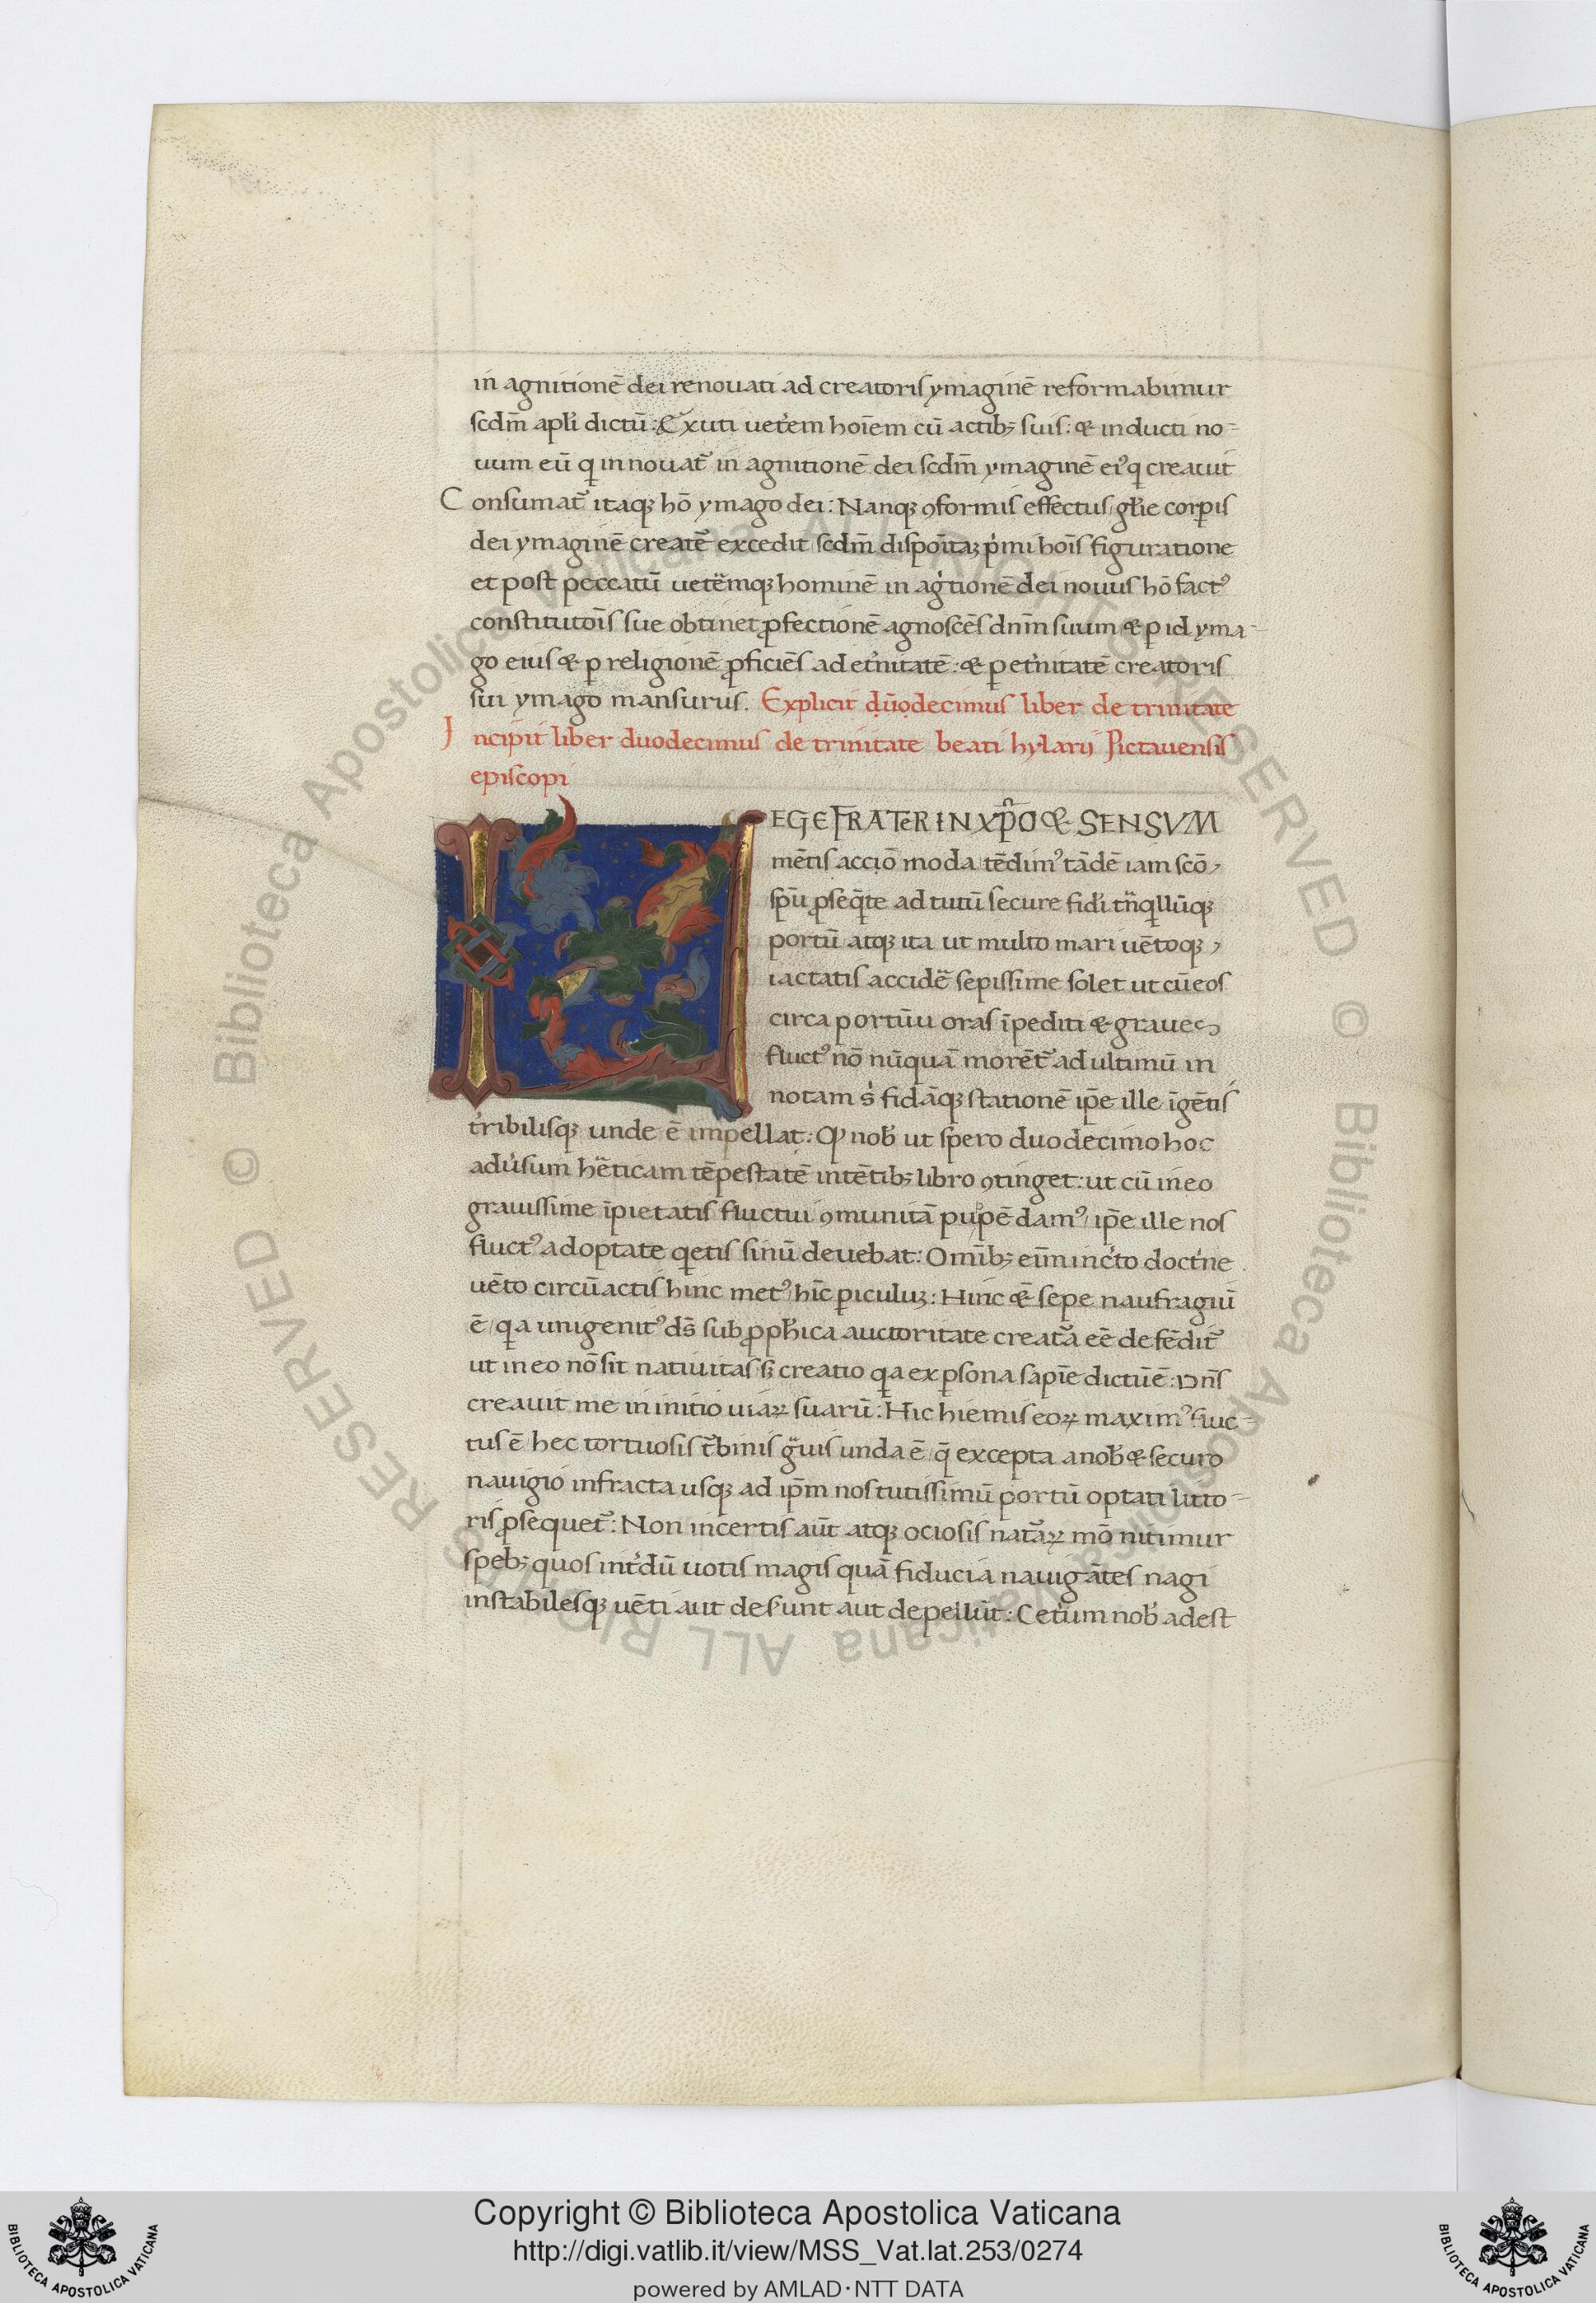 in agnitionē dei renouati ad creatoris ymaginē reformabimur
scdm̄ apl'i dictū: Exuti uet'em hoīem cū actib; suis: & inducti no-
uum eū q innouat᷑ in agnitionē dei scdm̄ ymaginē ei᾿ q creauit
Consumat᷑ itaqꝫ hō ymago dei: Nanqꝫ ꝯformis effectus gl'ie corꝑis
dei ymaginē creatē excedit scdm̄ dispoītaꝫ p'mi hoīs figuratione
et post peccatū uetēmqꝫ hominē in ag'tionē dei nouus hō fact᾿
constitutoīs sue obtinet ꝓfectionē agnoscēs dnm̄ suum & ꝑ id yma-
go eius & ꝑ religionē ꝓficiēs ad et'nitatē: & ꝑ et'nitatē creatoris
sui ymago mansurus. Explicit du̅odecimus liber de trinitate
Incipit liber duodecimus de trinitate beati hylarij Pictauensis
episcopi
LEGE FRATER IN XP̄O & SENSVM
mētis acciō moda tēdim᾿ tādē iam scō
spū ꝓseq̄te ad tutū secure fidi tn̄qllūqꝫ
portū atqꝫ ita ut multo mari uētoqꝫ
iactatis accidē sepissime solet ut cū eos
circa portūu oras īpediti & graues
fluct᾿ nō nūquā morēt᷑ ad ultimū in
notam s' fidāqꝫ stationē ip̄e ille īgētis
t'ribilisqꝫ unde ē impellat: Qꝫ nob' ut spero duodecimo hoc
adu'sum hēticam tēpestatē intētib; libro ꝯtinget: ut cū in eo
grauissime īpietatis fluctui ꝯmunitā pupē dam᾿ ip̄e ille nos
fluct᾿ ad optate qetis sinū deuebat: Omīb; eīm inc'to doct'ne
uēto circūactis hinc met᾿ hīc ꝑiculuꝫ: Hinc & sepe naufragiū
ē qa unigenit᾿ ds̄ sub ꝓph'ica auctoritate creatā eē defēdit᷑
ut in eo nō sit natiuitas sꝫ creatio qa ex ꝑsona sapīe dictū ē: Dn̄s
creauit me in initio uiaꝝ suarū: Hic hiemis eoꝝ maxim᾿ fluc-
tus ē hec tortuosis t'binis g̈uis unda ē q̄ excepta a nob' & securo
nauigio infracta usqꝫ ad ip̄m nos tutissimū portū optati litto-
ris ꝓsequet᷑: Non incertis aūt atqꝫ ociosis natāꝝ mō nitimur
speb; quos int'dū uotis magis quā fiducia nauigātes nagi
instabilesqꝫ uēti aut des'unt aut depellūt: Cet'um nob' adest
Copyright © Biblioteca Apostolica Vaticana
http://digi.vatlib.it/view/MSS_Vat.lat.253/0274
powered by AMLAD·NTT DATA